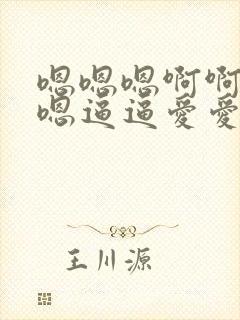 嗯嗯嗯啊啊
嗯逼逼爱爱
王川源